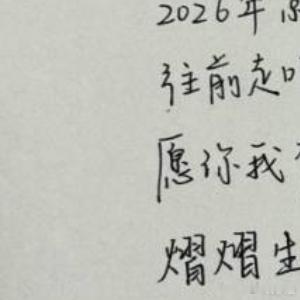 2026年
往前走
愿你我
熠熠生